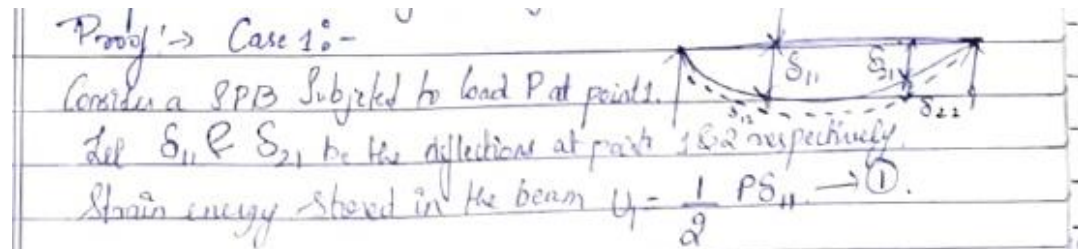 Proof :→ Case 1:-
δ₁₁ δ₂₁
Consider a SPB Subjected to load P at point 1.
δ₁₂ δ₂₂
Let δ₁₁ & δ₂₁ be the deflections at point 1&2 respectively.
Strain energy stored in the beam U₁ = 1/2 Pδ₁₁ → ①.